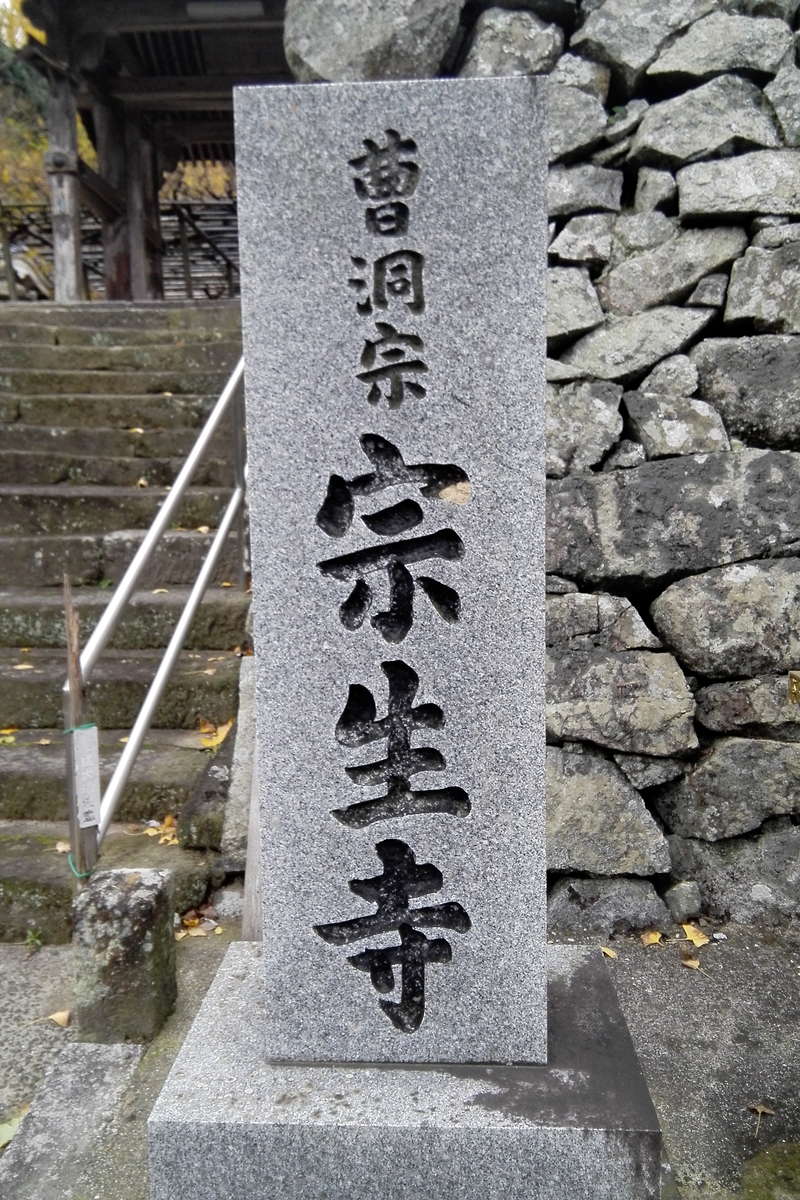 曹洞宗
宗生寺